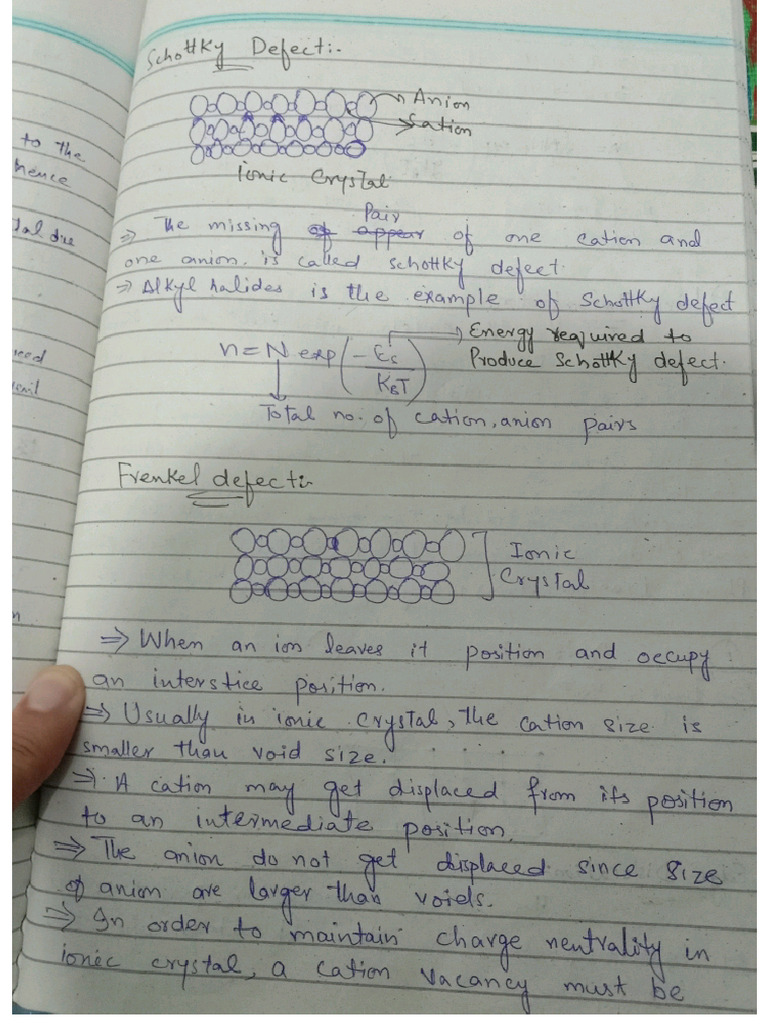 Schottky Defect:-
Anion
Cation
ionic crystal
⇒ The missing of appear Pair of one cation and
one anion. is called schottky defect.
⇒ Alkyl halides is the example of Schottky defect
n = N exp(-Es/KBT) → Energy required to
Produce schottky defect.
Total no. of cation, anion pairs
Frenkel defect:-
Ionic
Crystal
⇒ When an ion leaves it position and occupy
an interstice position.
⇒ Usually in ionic crystal, the cation size is
smaller than void size.
⇒ A cation may get displaced from its position
to an intermediate position.
⇒ The anion do not get displaced since size
of anion are larger than voids.
⇒ In order to maintain charge neutrality in
ionic crystal, a cation vacancy must be
to the
hence